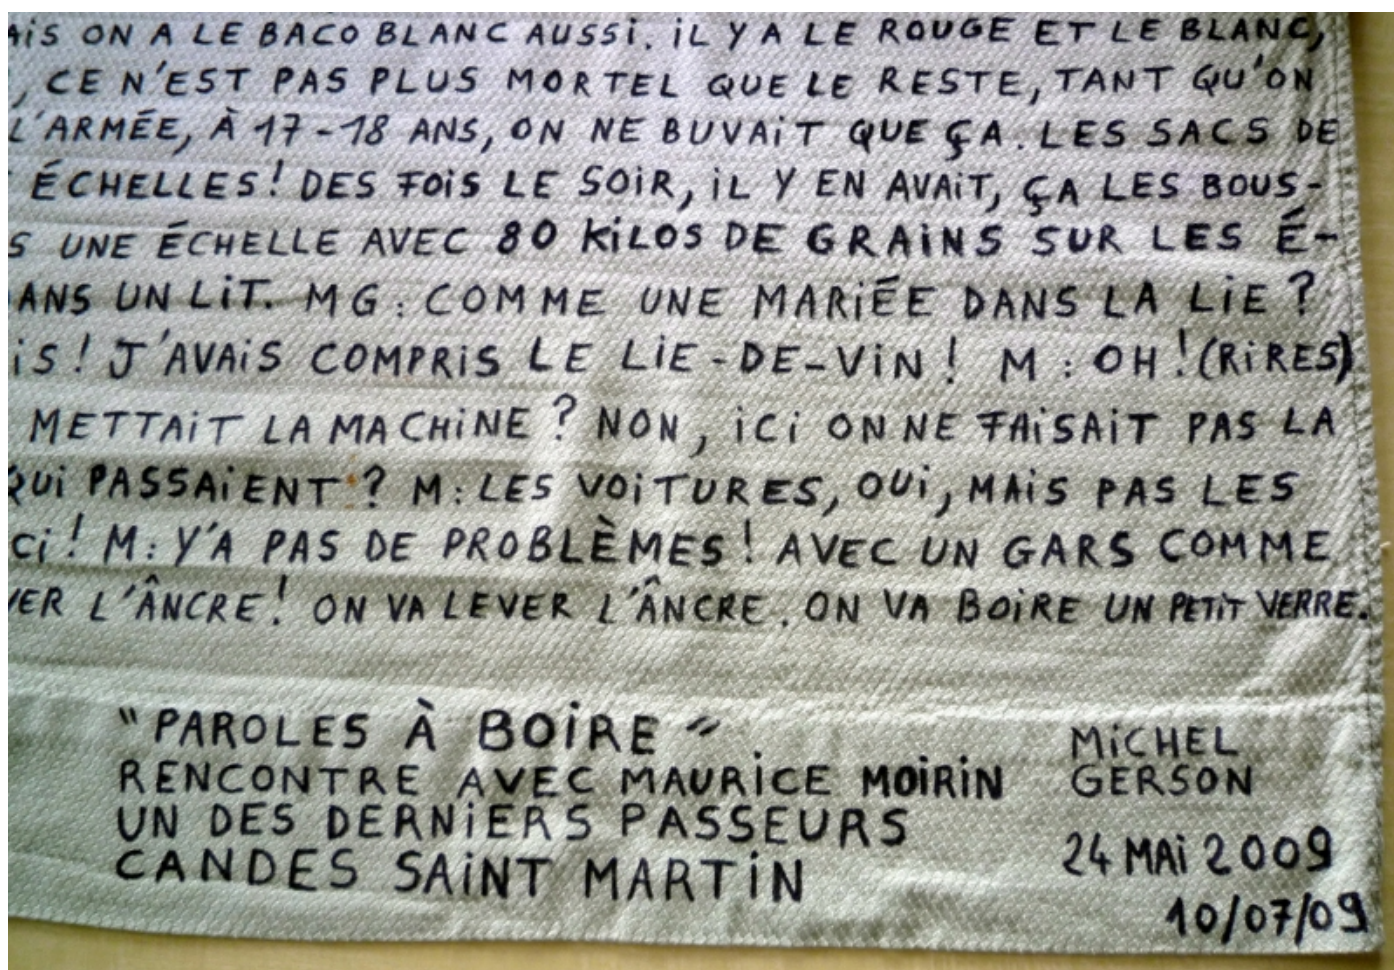 AiS ON A LE BACO BLANC AUSSi. iL Y A LE ROUGE ET LE BLANC,
, CE N'EST PAS PLUS MORTEL QUE LE RESTE, TANT QU'ON
L'ARMÉE, À 17-18 ANS, ON NE BUVAiT QUE ÇA. LES SACS DE
ÉCHELLES! DES FOiS LE SOiR, iL Y EN AVAiT, ÇA LES BOUS-
S UNE ÉCHELLE AVEC 80 KiLOS DE GRAiNS SUR LES É-
ANS UN LiT. MG: COMME UNE MARiÉE DANS LA LiE?
iS! J'AVAiS COMPRiS LE LiE-DE-ViN! M: OH! (RiRES)
METTAiT LA MACHiNE? NON, iCi ON NE FAiSAiT PAS LA
QUi PASSAiENT? M: LES VOiTURES, OUi, MAiS PAS LES
Ci! M: Y'A PAS DE PROBLÈMES! AVEC UN GARS COMME
VER L'ÂNCRE! ON VA LEVER L'ÂNCRE. ON VA BOiRE UN PETiT VERRE.
"PAROLES À BOiRE"
RENCONTRE AVEC MAURiCE MOiRiN
UN DES DERNiERS PASSEURS
CANDES SAiNT MARTiN
MiCHEL
GERSON
24 MAi 2009
10/07/09